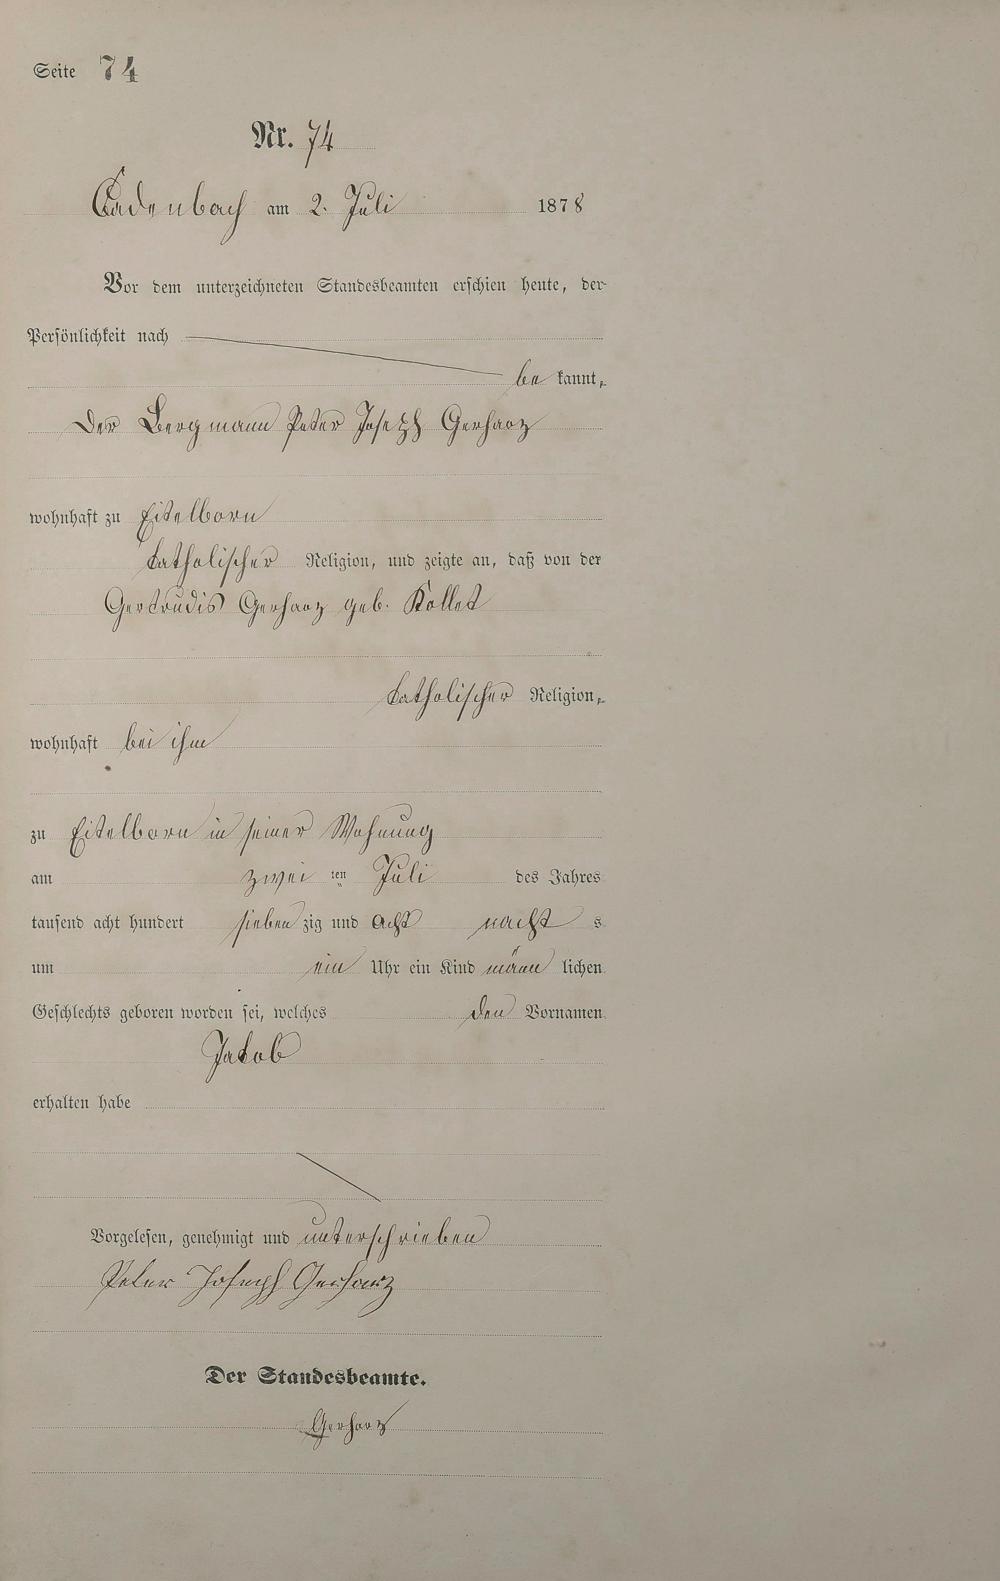 Seite 74
Nr. 74
Cadenbach am 2. Juli 1878
Vor dem unterzeichneten Standesbeamten erschien heute, der
Persönlichkeit nach
be kannt,
Der Bergmann Peter Joseph Gerharz
wohnhaft zu Eitelborn
katholischer Religion, und zeigte an, daß von der
Gertrudis Gerharz geb. Kollet
katholischer Religion,
wohnhaft bei ihm
zu Eitelborn in seiner Wohnung
am zwei ten Juli des Jahres
tausend acht hundert sieben zig und acht nacht s
um ein Uhr ein Kind männ lichen
Geschlechts geboren worden sei, welches den Vornamen
Jakob
erhalten habe
Vorgelesen, genehmigt und unterschrieben
Peter Joseph Gerharz
Der Standesbeamte.
Gerharz